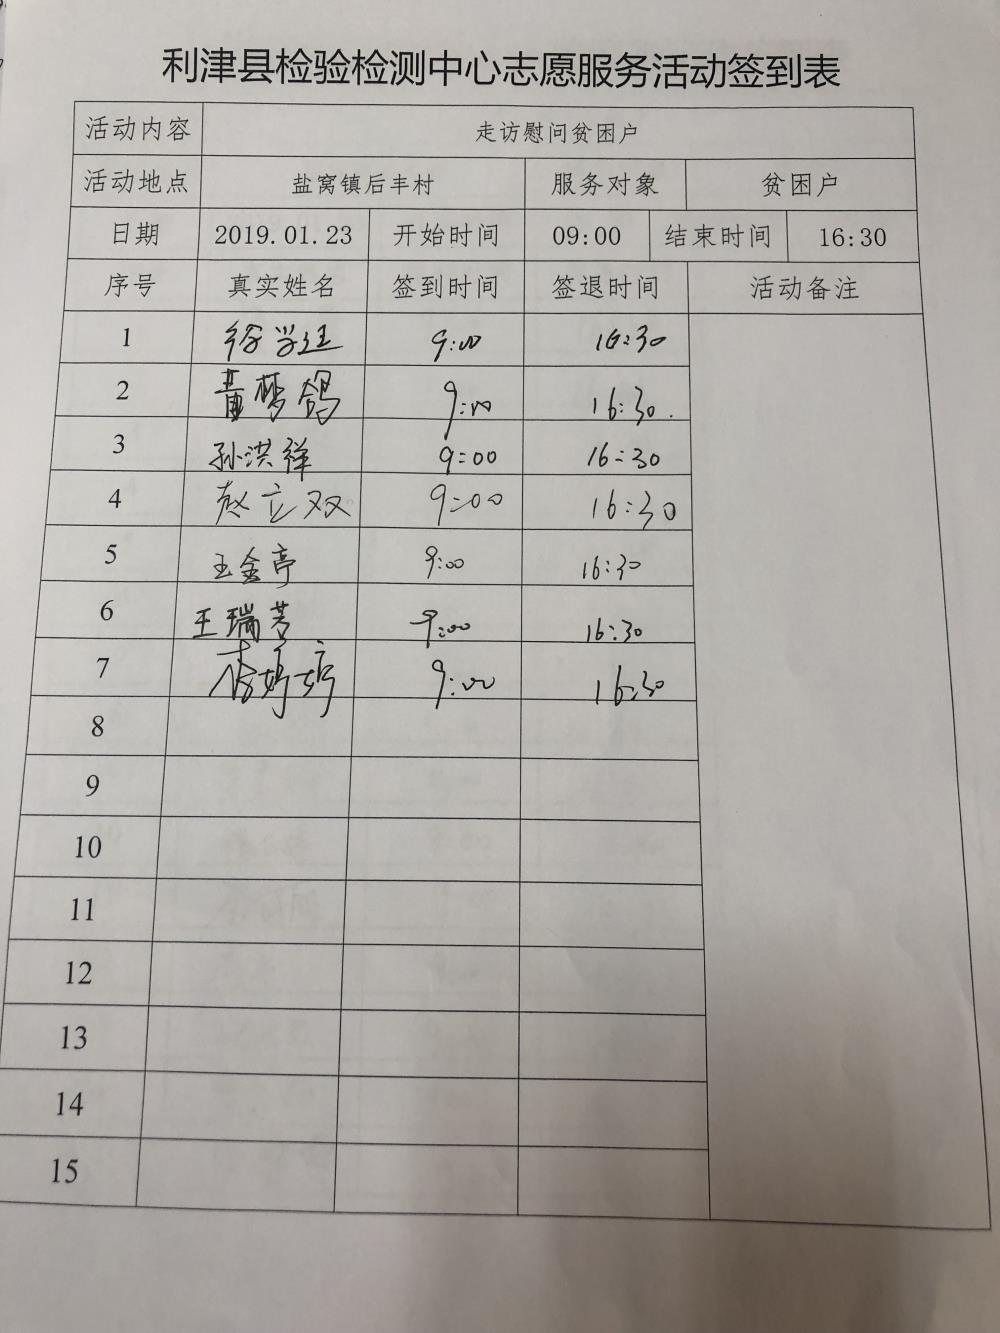 利津县检验检测中心志愿服务活动签到表
活动内容 走访慰问贫困户
活动地点 盐窝镇后丰村 服务对象 贫困户
日期 2019.01.23 开始时间 09:00 结束时间 16:30
序号 真实姓名 签到时间 签退时间 活动备注
1 徐学 9:00 16:30
2 黄梦鸽 9:00 16:30.
3 孙洪祥 9:00 16:30
4 赵立双 9:00 16:30
5 王金亭 9:00 16:30
6 王瑞芳 9:00 16:30
7 李婷婷 9:00 16:30
8
9
10
11
12
13
14
15